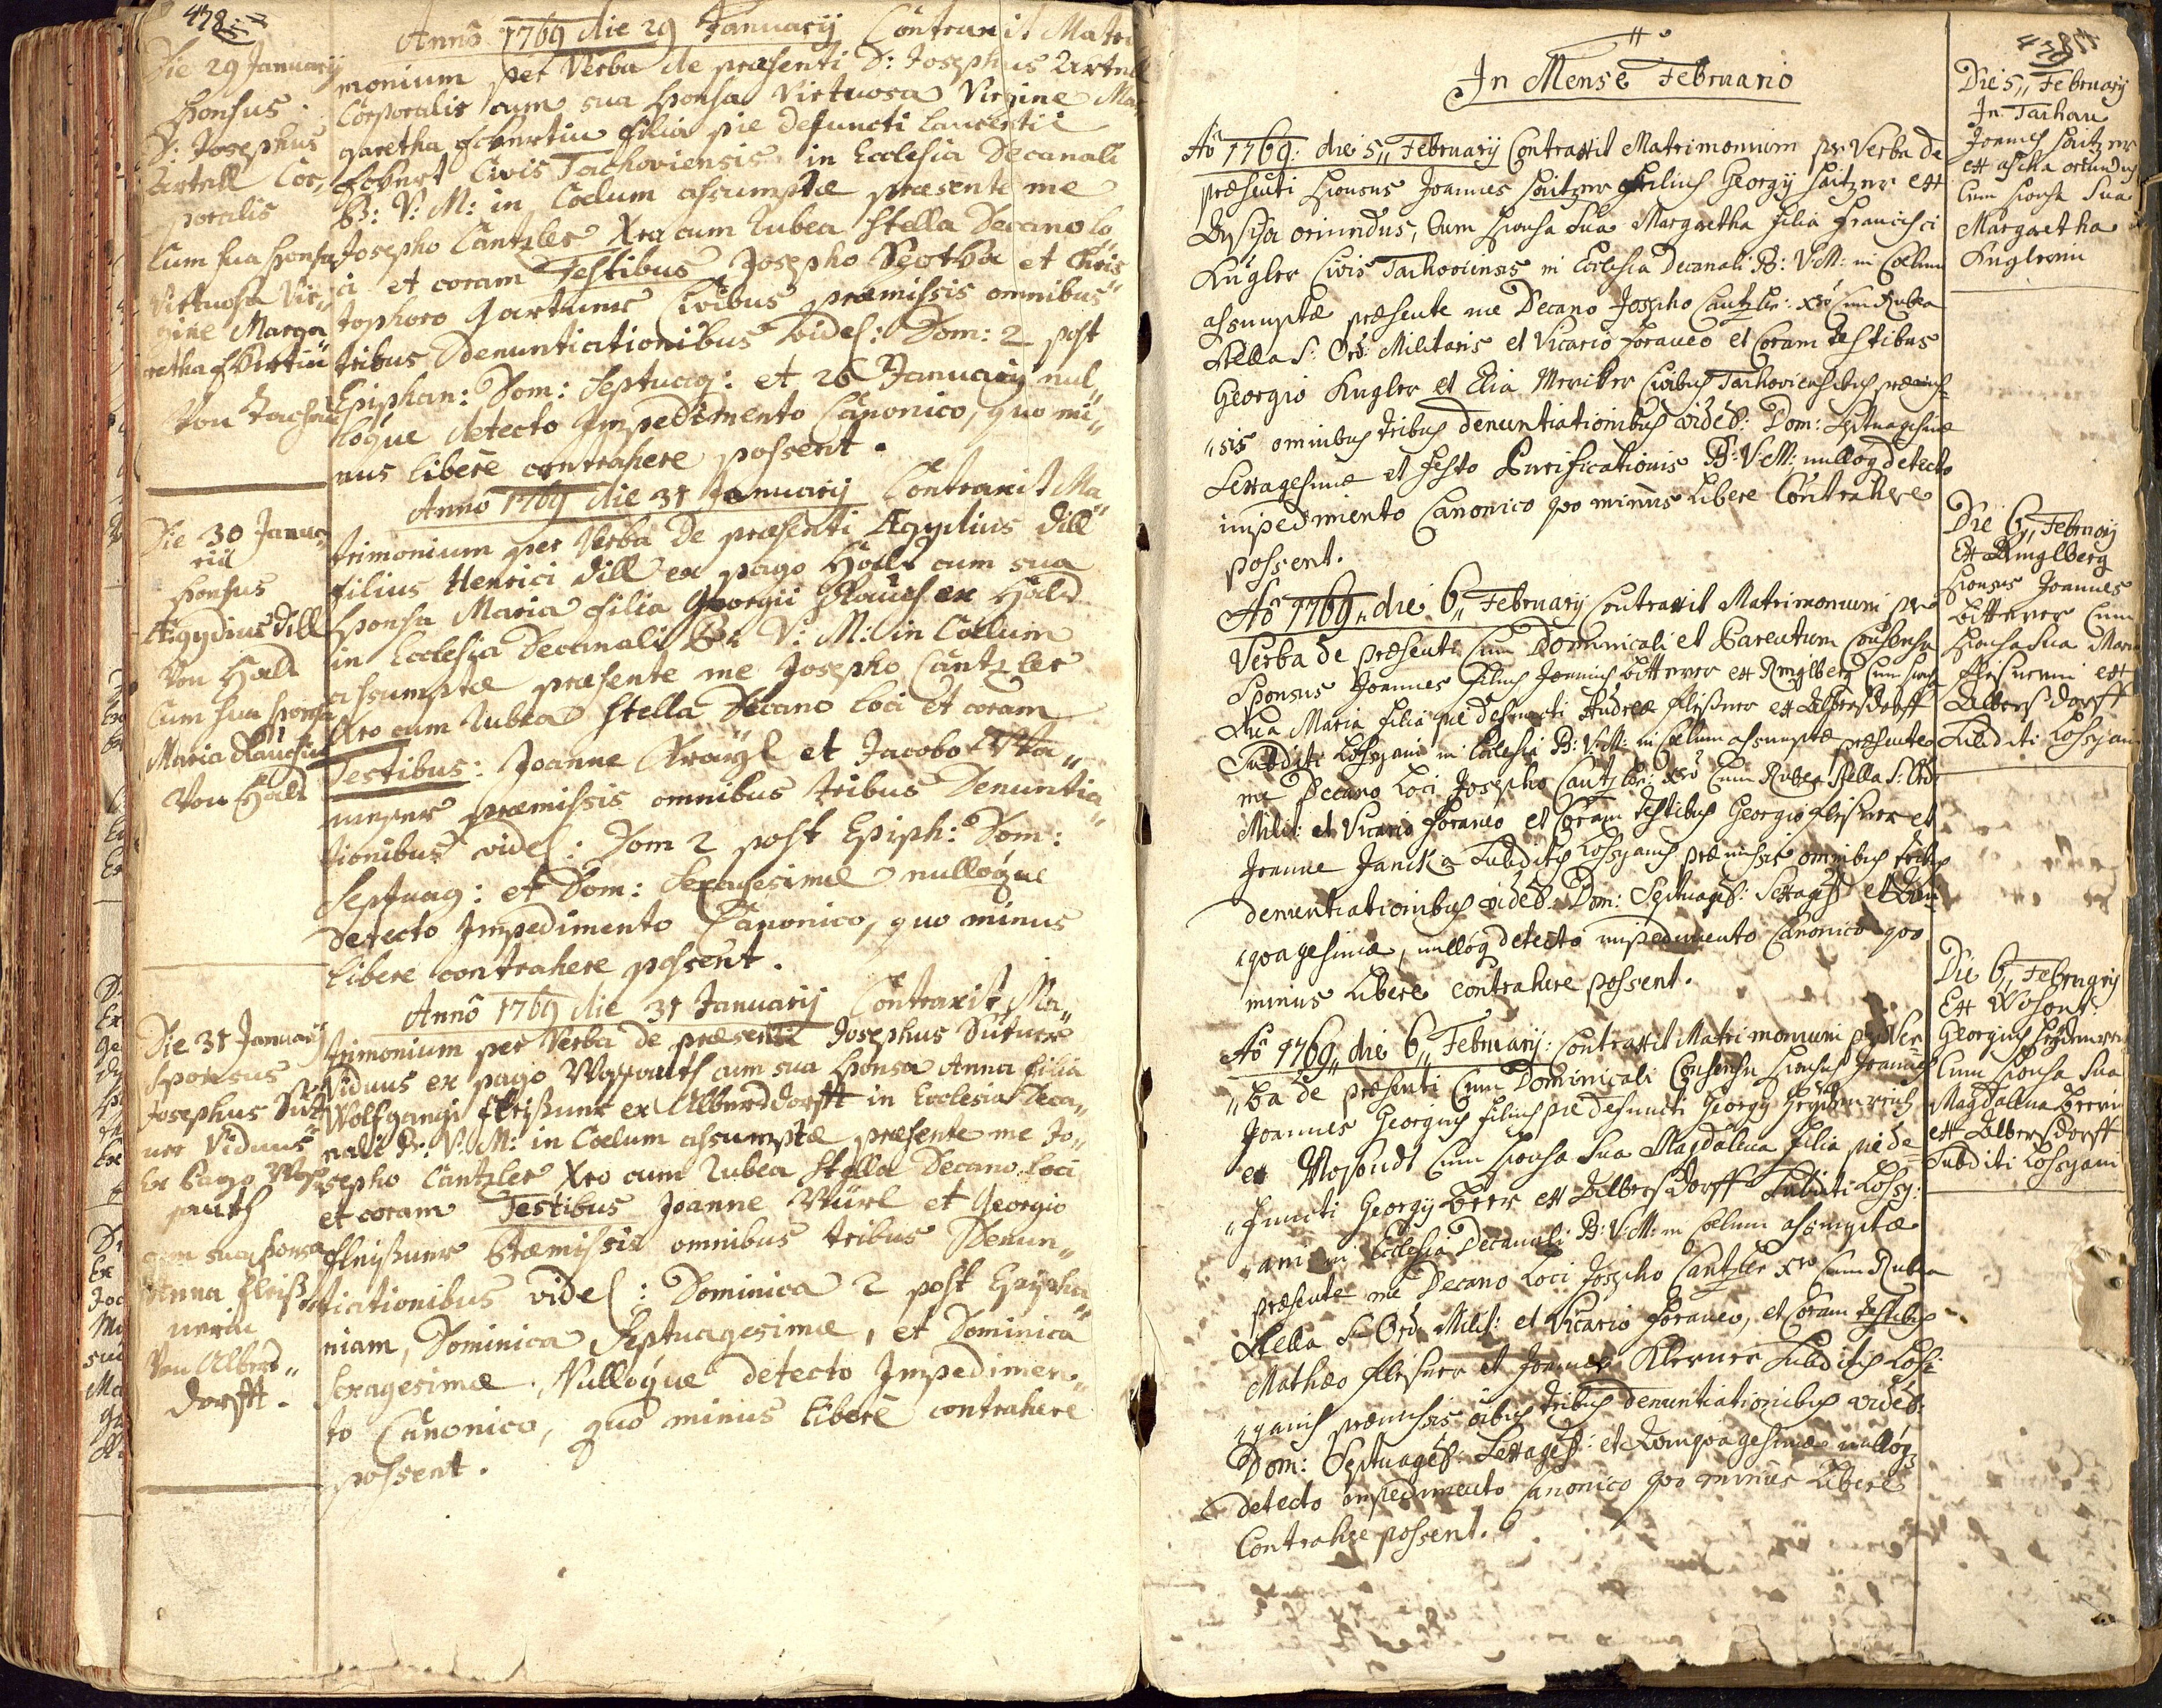 478
Die 29 Januarij
Sponsus
D: Josephus
Artnell Cor„
poralis
Cum sua sponsa
Virtuosa Vir„
gine Marga„
retha Eckertin
Von Tachau
Anno 1769 die 29 Januarij Contraxit Matri
monium per Verba de præsenti D: Josephus Artnell
Corporalis cum sua sponsa Virtuosa Virgine Mar„
garetha Eckertin filia pie defuncti Laurentii
Eckert Civis Tachoviensis in Ecclesia Decanali
B: V: M: in Coelum assumptæ præsente me
Josepho Cantzler Xro cum rubea Stella Decano Lo„
ci et coram Testibus Josepho et Chris„
tophoro Gartner Civibus præmissis omnibus
tribus Denuntiationibus videl: Dom: 2 post
Epiphan: Dom: Septuag: et 26 Januarij nul„
loque detecto Impedimento Canonico, quo mi„
nus libere contrahere possent.
Die 30 Janua„
rii
sponsus
Ægydius Dill
Von Hals
Cum sua sponsa
Maria Rauchin
Von Hals
Anno 1769 die 31 Januarij Contraxit Ma„
trimonium per Verba de præsenti Ægydius Dill
filius Henrici Dill ex pago Hals cum sua
sponsa Maria filia Georgii Rauch ex Hals
in Ecclesia Decanali B: V: M: in Coelum
assumptæ præsente me Josepho Cantzler
Xro cum rubea Stella Decano Loci et coram
Testibus: Joanne et Jacobo
præmissis omnibus tribus Denuntia„
tionibus videl: Dom 2 post Epiph: Dom:
Septuag: et Dom: Sexagesimæ nulloque
detecto Impedimento Canonico, quo minus
libere contrahere possent.
Die 31 Januarij
Sponsus
Josephus Sut„
ner Viduus
Ex Pago Wos„
santh
cum sua sponsa
Anna Fleiß„
nerin
Von Albers„
dorfft.
Anno 1769 die 31 Januarij Contraxit Ma„
trimonium per Verba de præsenti Josephus Sutner
Viduus ex pago Wossanth cum sua sponsa Anna filia
Wolfgangi Fleißner ex Albersdorfft in Ecclesia Deca„
nali B: V: M: in Coelum assumptæ præsente me Jo„
sepho Cantzler Xro cum rubea Stella Decano Loci
et coram Testibus Joanne Würl et Georgio
Fleißner præmissis omnibus tribus Denun„
tiationibus videl: Dominica 2 post Epipha„
niam, Dominica Septuagesimæ, et Dominica
Sexagesimæ, Nulloque detecto Impedimen„
to Canonico, quo minus libere contrahere
possent.
In Mense Februario
Aô 1769: die 5„ February Contraxit Matrimonium per Verba de
præsenti Sponsus Joannes Saitzner filius Georgij Saitzner ex
oriundus, Cum Sponsa Sua Margaretha filia Francisci
Kugler Civis Tachoviensis in Ecclesia Decanali B: V:M: in Coelum
assumptæ præsente me Decano Josepho Cantzler: Xro Cum Rubea
Stella S: Ord: Militaris et Vicario foraneo et Coram Testibus
Georgio Kugler et Elia Civibus Tachoviensibus præmis=
„sis omnibus tribus denuntiationibus videl: Dom: Septuagesimæ
Sexagesimæ et festo Purificationis B: V:M: nulloq detecto
impedimento Canonico quo minus Libere Contrahere
possent.
Aô 1769„ die 6„ February Contraxit Matrimonium per
Verba de præsenti Cum Dominicali et Parentum Consensu
Sponsus Joannes filius Joannis Bitterer ex Ringlberg Cum Sponsa
Sua Maria filia pie defuncti Andreæ Fleißner ex Albersdorff
Subditi Lossyani in Ecclesia B: V:M: in Coelum assumptæ præsente
me Decano Loci Josepho Cantzler: Xro Cum Rubea Stella S: Ord:
Milit: et Vicario foraneo et Coram Testibus Georgio Fleisner et
Joanne Janicka Subditis Lossyanis præmissis omnibus tribus
denuntiationibus videl: Dom: Septuages: Sexages: et Quin
„quagesimæ, nulloq detecto impedimento Canonico quo
minus Libere contrahere possent.
Aô 1769„ die 6„ February: Contraxit Matrimonium per Ver=
„ba de præsenti Cum Dominicali Consensu Sponsus Joannes
Joannes Georgius filius pie defuncti Georgy
ex Wosondt Cum Sponsa Sua Magdalena filia pie de=
„functi Georgy Beer ex Albersdorff Subditi Lossy:
„ani in Ecclesia Decanali B: V:M: in Coelum assumptæ
præsente me Decano Loci Josepho Cantzler Xro Cum Rubea
Stella S: Ord: Milit: et Vicario foraneo, et Coram Testibus
Mathæo Fleisner et Joanne Klerner Subditis Lossi
„yanis præmissis oibus tribus denuntiationibus videl:
Dom: Septuages: Sexages: et Quinquagesimæ nulloq
detecto impedimento Canonico quo minus Libere
Contrahere possent.
Die 5„ February
In Tachau
Joannes Saitzner
ex oriundus
Cum sponsa Sua
Margaretha
Kuglerin
Die 6„ February
Ex Ringlberg
Sponsus Joannes
Bitterer Cum
Sponsa Sua Maria
Fleisnerin ex
Albersdorff
Subditi Lossyani
Die 6„ February
Ex Wosont:
Georgius
Cum Sponsa Sua
Magdalena Beerin
ex Albersdorff
Subditi Lossyani